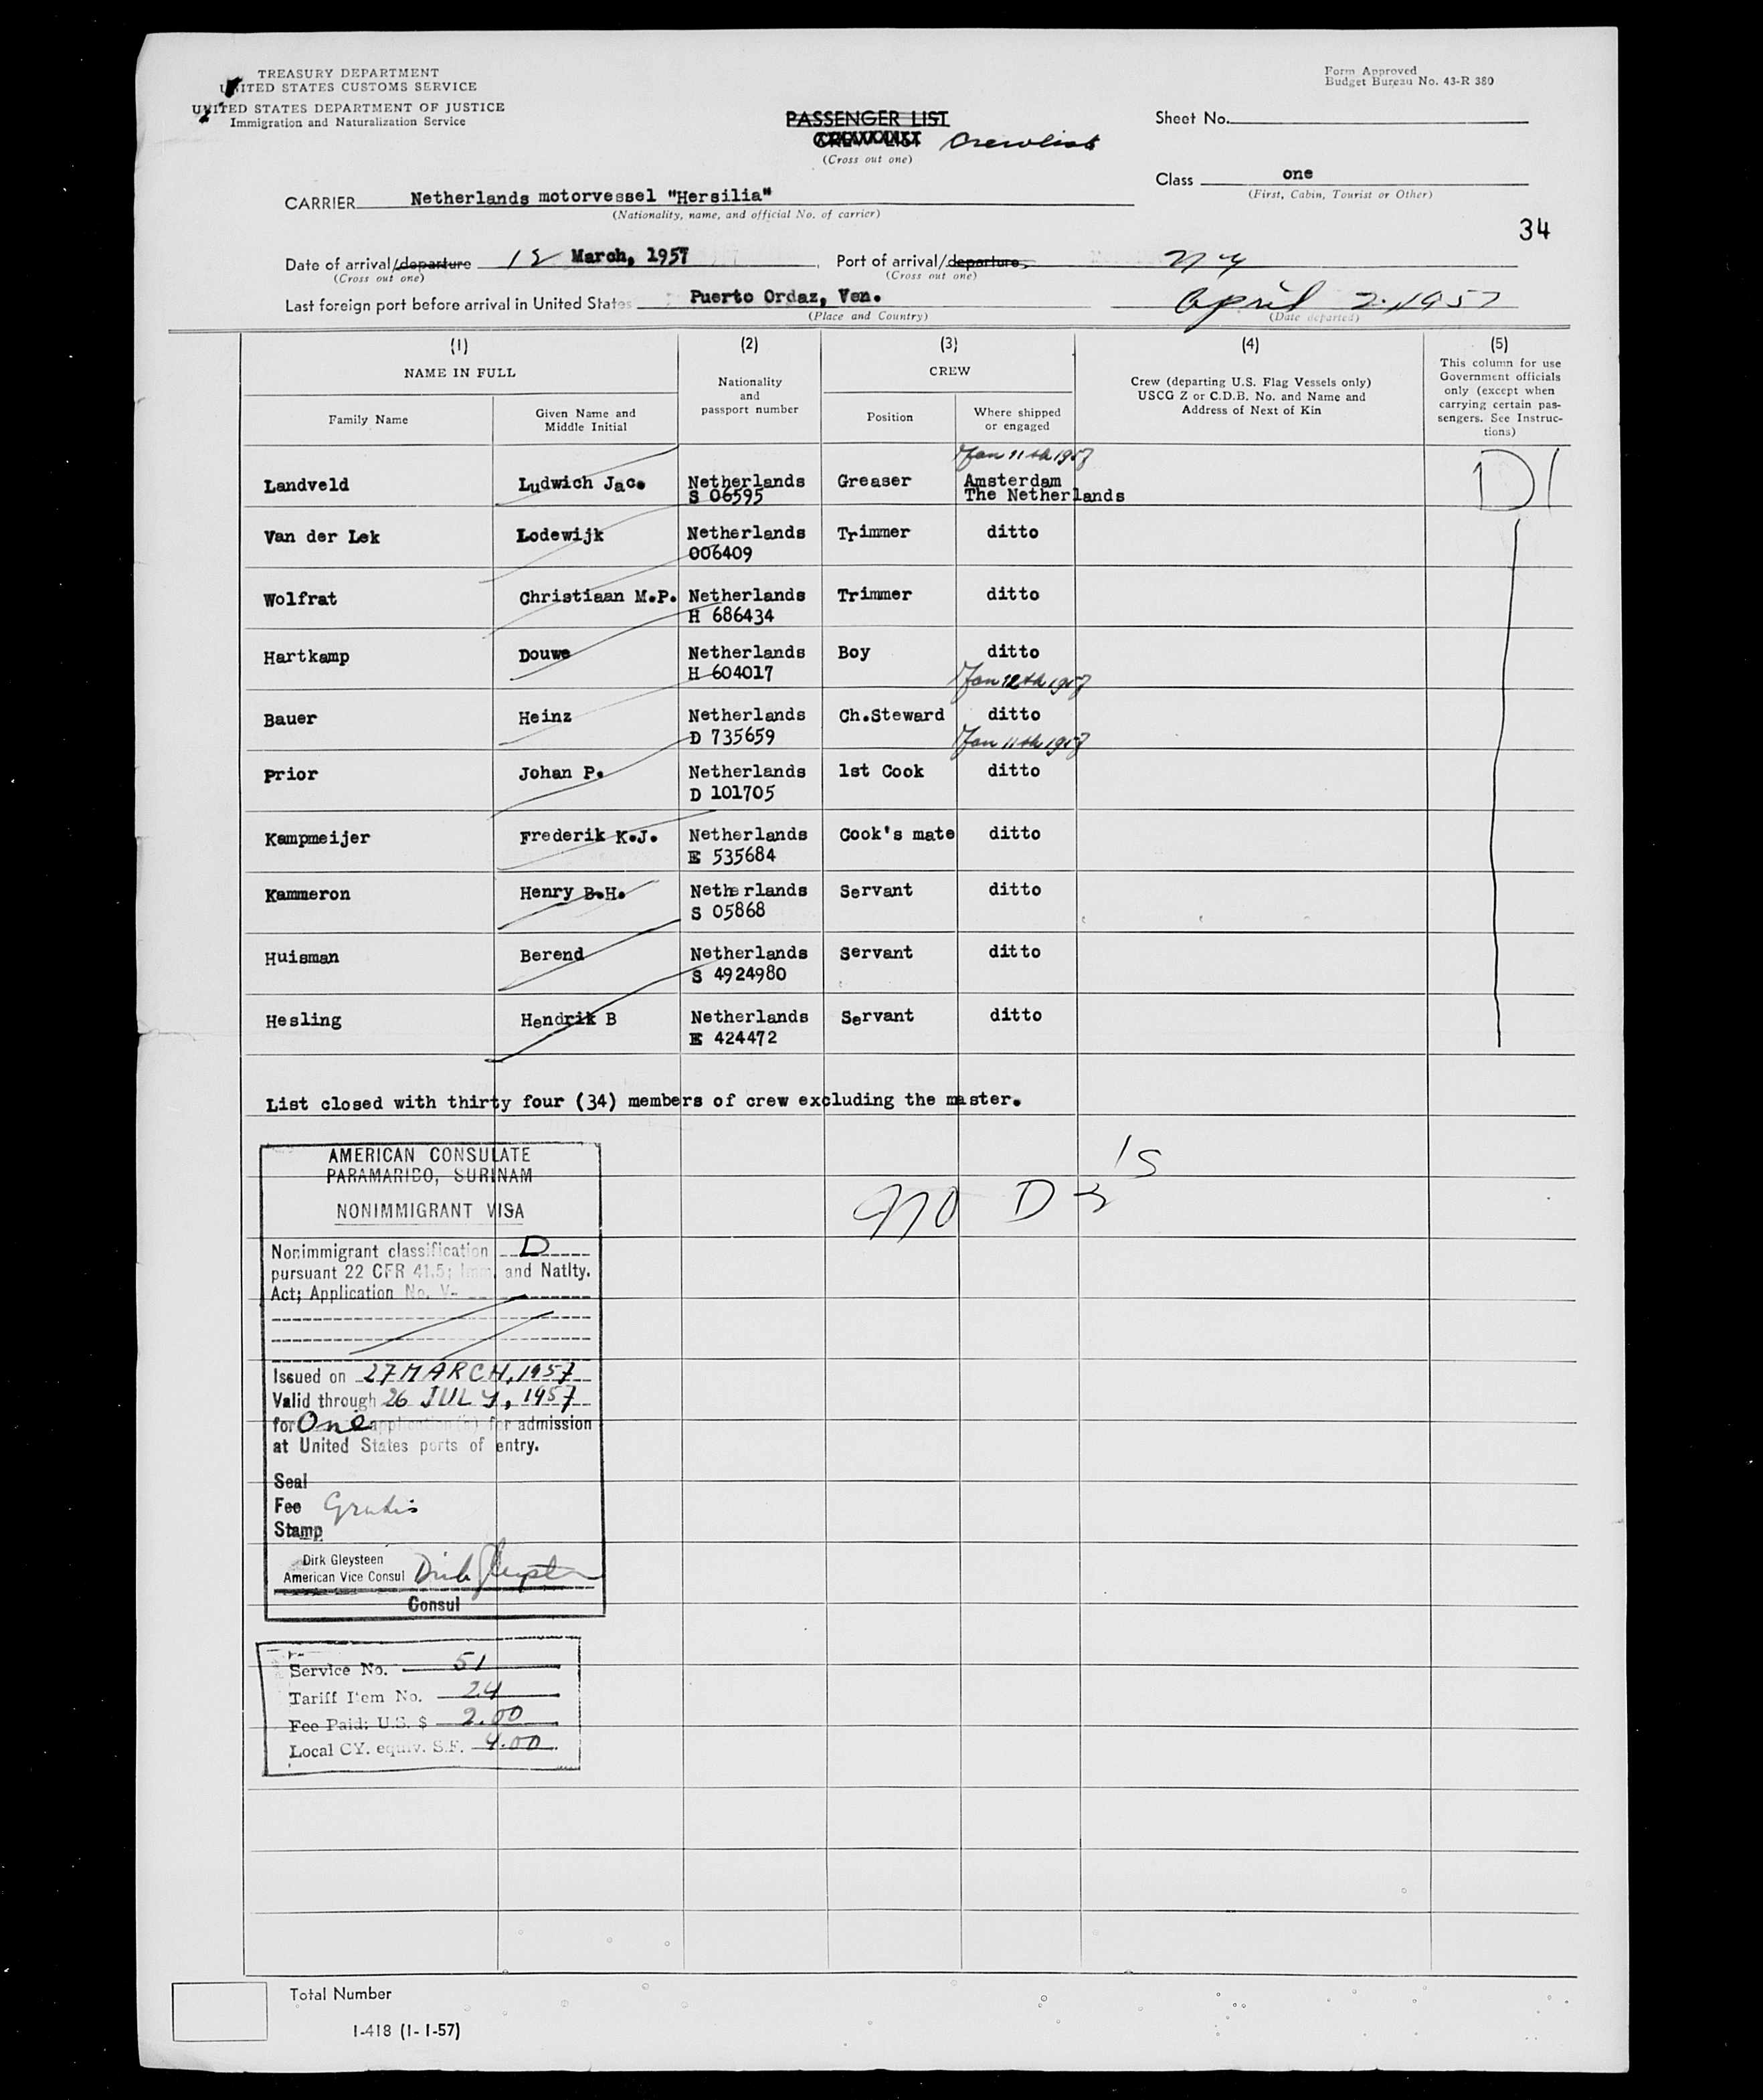 TREASURY DEPARTMENT
UNITED STATES CUSTOMS SERVICE
UNITED STATES DEPARTMENT OF JUSTICE
Immigration and Naturalization Service
Form Approved
Budget Bureau No. 43-R 380
PASSENGER LIST
CREW LIST Crewlist
(Cross out one)
Sheet No.
Class one
(First, Cabin, Tourist or Other)
CARRIER Netherlands motorvessel "Hersilia"
(Nationality, name, and official No. of carrier)
34
Date of arrival/departure March, 1957 Port of arrival/departure NY
(Cross out one) (Cross out one)
Last foreign port before arrival in United States Puerto Ordaz, Ven. April 2. 1957
(Place and Country) (Date departed)
(1) (2) (3) (4) (5)
NAME IN FULL
Family Name
Given Name and
Middle Initial
Nationality
and
passport number
CREW
Position
Where shipped
or engaged
Crew (departing U.S. Flag Vessels only)
USCG Z or C.D.B. No. and Name and
Address of Next of Kin
This column for use
Government officials
only (except when
carrying certain pas-
sengers. See Instruc-
tions)
Jan 11th 1957
Landveld Ludwich Jac. Netherlands Greaser Amsterdam D1
S 06595 The Netherlands
Van der Lek Lodewijk Netherlands Trimmer ditto
006409
Wolfrat Christiaan M.P. Netherlands Trimmer ditto
H 686434
Hartkamp Douwe Netherlands Boy ditto
H 604017 Jan 12th 1957
Bauer Heinz Netherlands Ch.Steward ditto
D 735659 Jan 11th 1957
Prior Johan P. Netherlands 1st Cook ditto
D 101705
Kampmeijer Frederik K.J. Netherlands Cook's mate ditto
E 535684
Kammeron Henry B.H. Netherlands Servant ditto
S 05868
Huisman Berend Netherlands Servant ditto
S 4924980
Hesling Hendrik B Netherlands Servant ditto
E 424472
List closed with thirty four (34) members of crew excluding the master.
AMERICAN CONSULATE
PARAMARIBO, SURINAM
NONIMMIGRANT VISA
no D
Nonimmigrant classification D
pursuant 22 CFR 41.5; Imm. and Natlty.
Act; Application No. V-
Issued on 27 MARCH, 1957
Valid through 26 JULY, 1957
for One application(s) for admission
at United States ports of entry.
Seal
Fee Gratis
Stamp
Dirk Gleysteen
American Vice Consul Dirk Gleysteen
Consul
Service No. 51
Tariff Item No. 24
Fee Paid: U.S. $ 2.00
Local CY. equiv. S.F. 4.00
Total Number
I-418 (1-1-57)